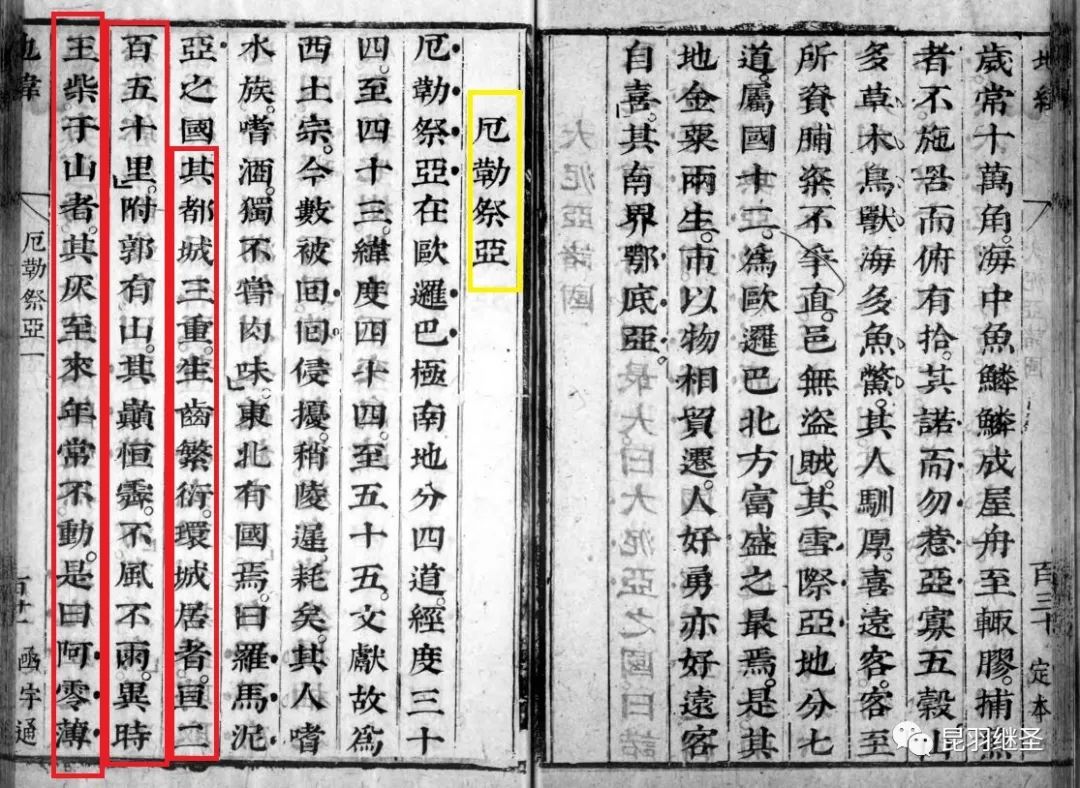 地緯
百三十
定本
歲常十萬角。海中魚鱗鱗成屋舟至輙膠。捕魚
者不施罟而俯有拾。其諾而勿惹亞寡五穀山
多草木鳥獸海多魚鱉。其人馴厚。喜遠客。客至
所資脯粢不爭直。邑無盜賊。其雪際亞地分七
道。屬國十二。爲歐邏巴北方富盛之最焉。是其
地金粟兩生。市以物相貿遷。人好勇亦好遠客
自喜。其南界鄂底亞。
厄勒祭亞
厄勒祭亞在歐邏巴極南地分四道。經度三十
四。至四十三。緯度四十四。至五十五。文獻故爲
西土宗。今數被回回侵擾。稍陵遲。耗矣。其人嗜
水族。嗜酒。獨不嘗肉味。東北有國焉。曰羅馬泥
亞之國其都城三重。生齒繁衍。環城居者。亘二
百五十里。附郭有山。其巔恒霽。不風不雨。異時
王柴于山者。其灰至來年常不動。是曰阿零薄
地緯
厄勒祭亞一
函宇通
昆羽继圣